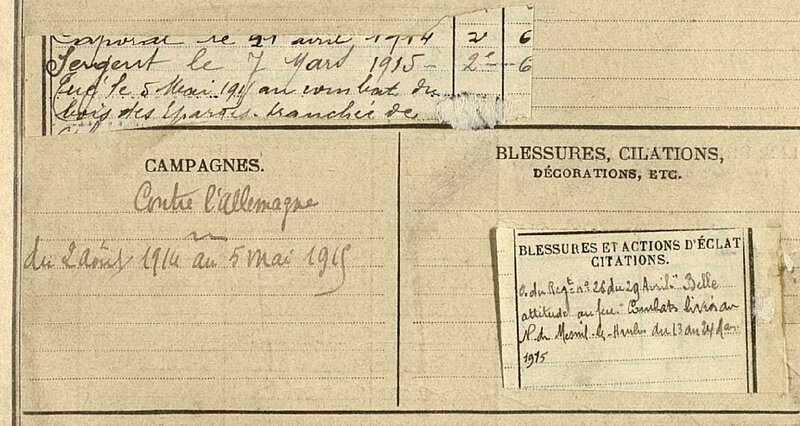 Caporal le 21 avril 1914 2e 6
Sergent le 7 Mars 1915 - 2e - 6
Tué le 5 Mai 1915 au combat du
bois des Eparges - tranchée de
CAMPAGNES.
Contre l'Allemagne
du 2 août 1914 au 5 mai 1915
BLESSURES, CILATIONS,
DÉCORATIONS, ETC.
BLESSURES ET ACTIONS D'ÉCLAT
CITATIONS.
O. du Regt n° 26 du 29 Avril " Belle
attitude au feu." Combats livrés au
N. de Mesnil-les-Hurlus du 13 au 24 Mars
1915